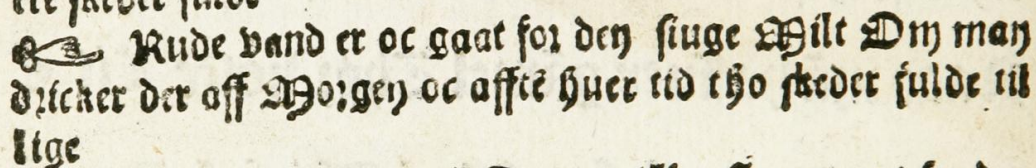 ☞ Rude vand er oc gaat for den siuge Milt Om man
dricker der aff Morgen oc affté huer tid tho skeder fulde til
lige